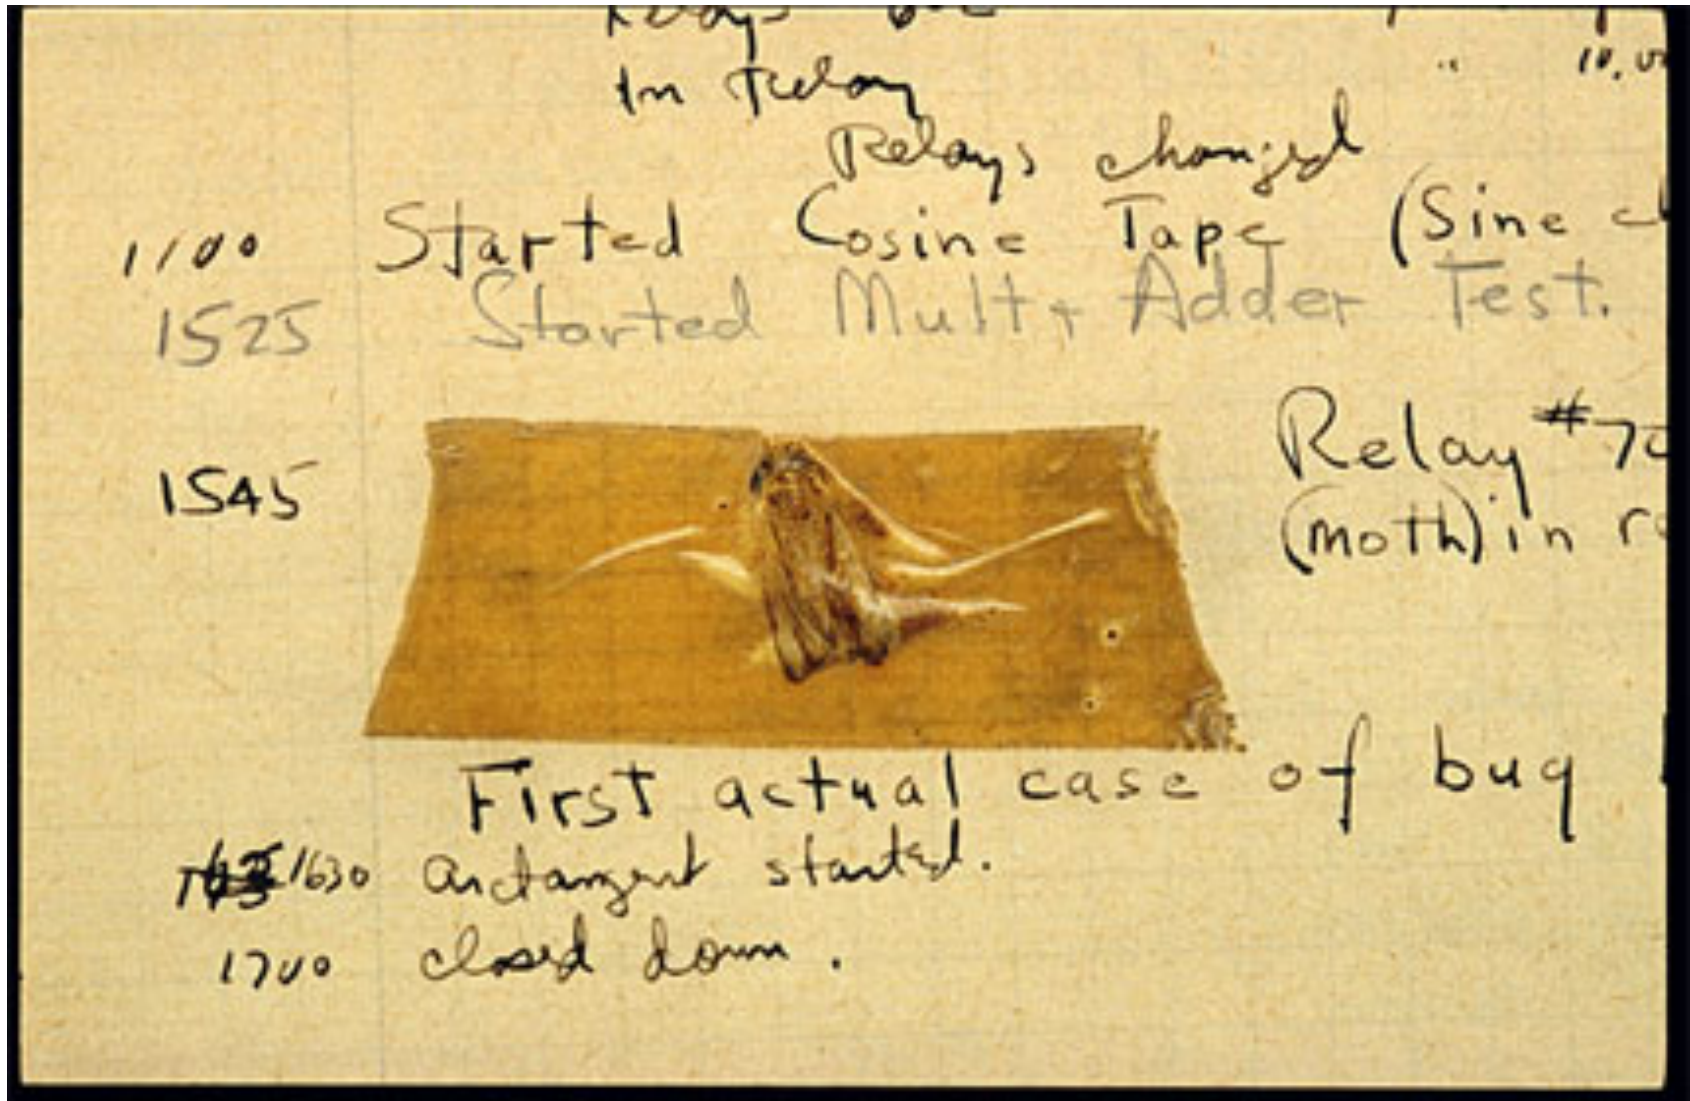 In Relay
Relays changed
1100 Started Cosine Tape (Sine
1525 Started Mult + Adder Test.
1545 Relay #70
(moth) in
First actual case of bug
1630 arctangent started.
1700 closed down.